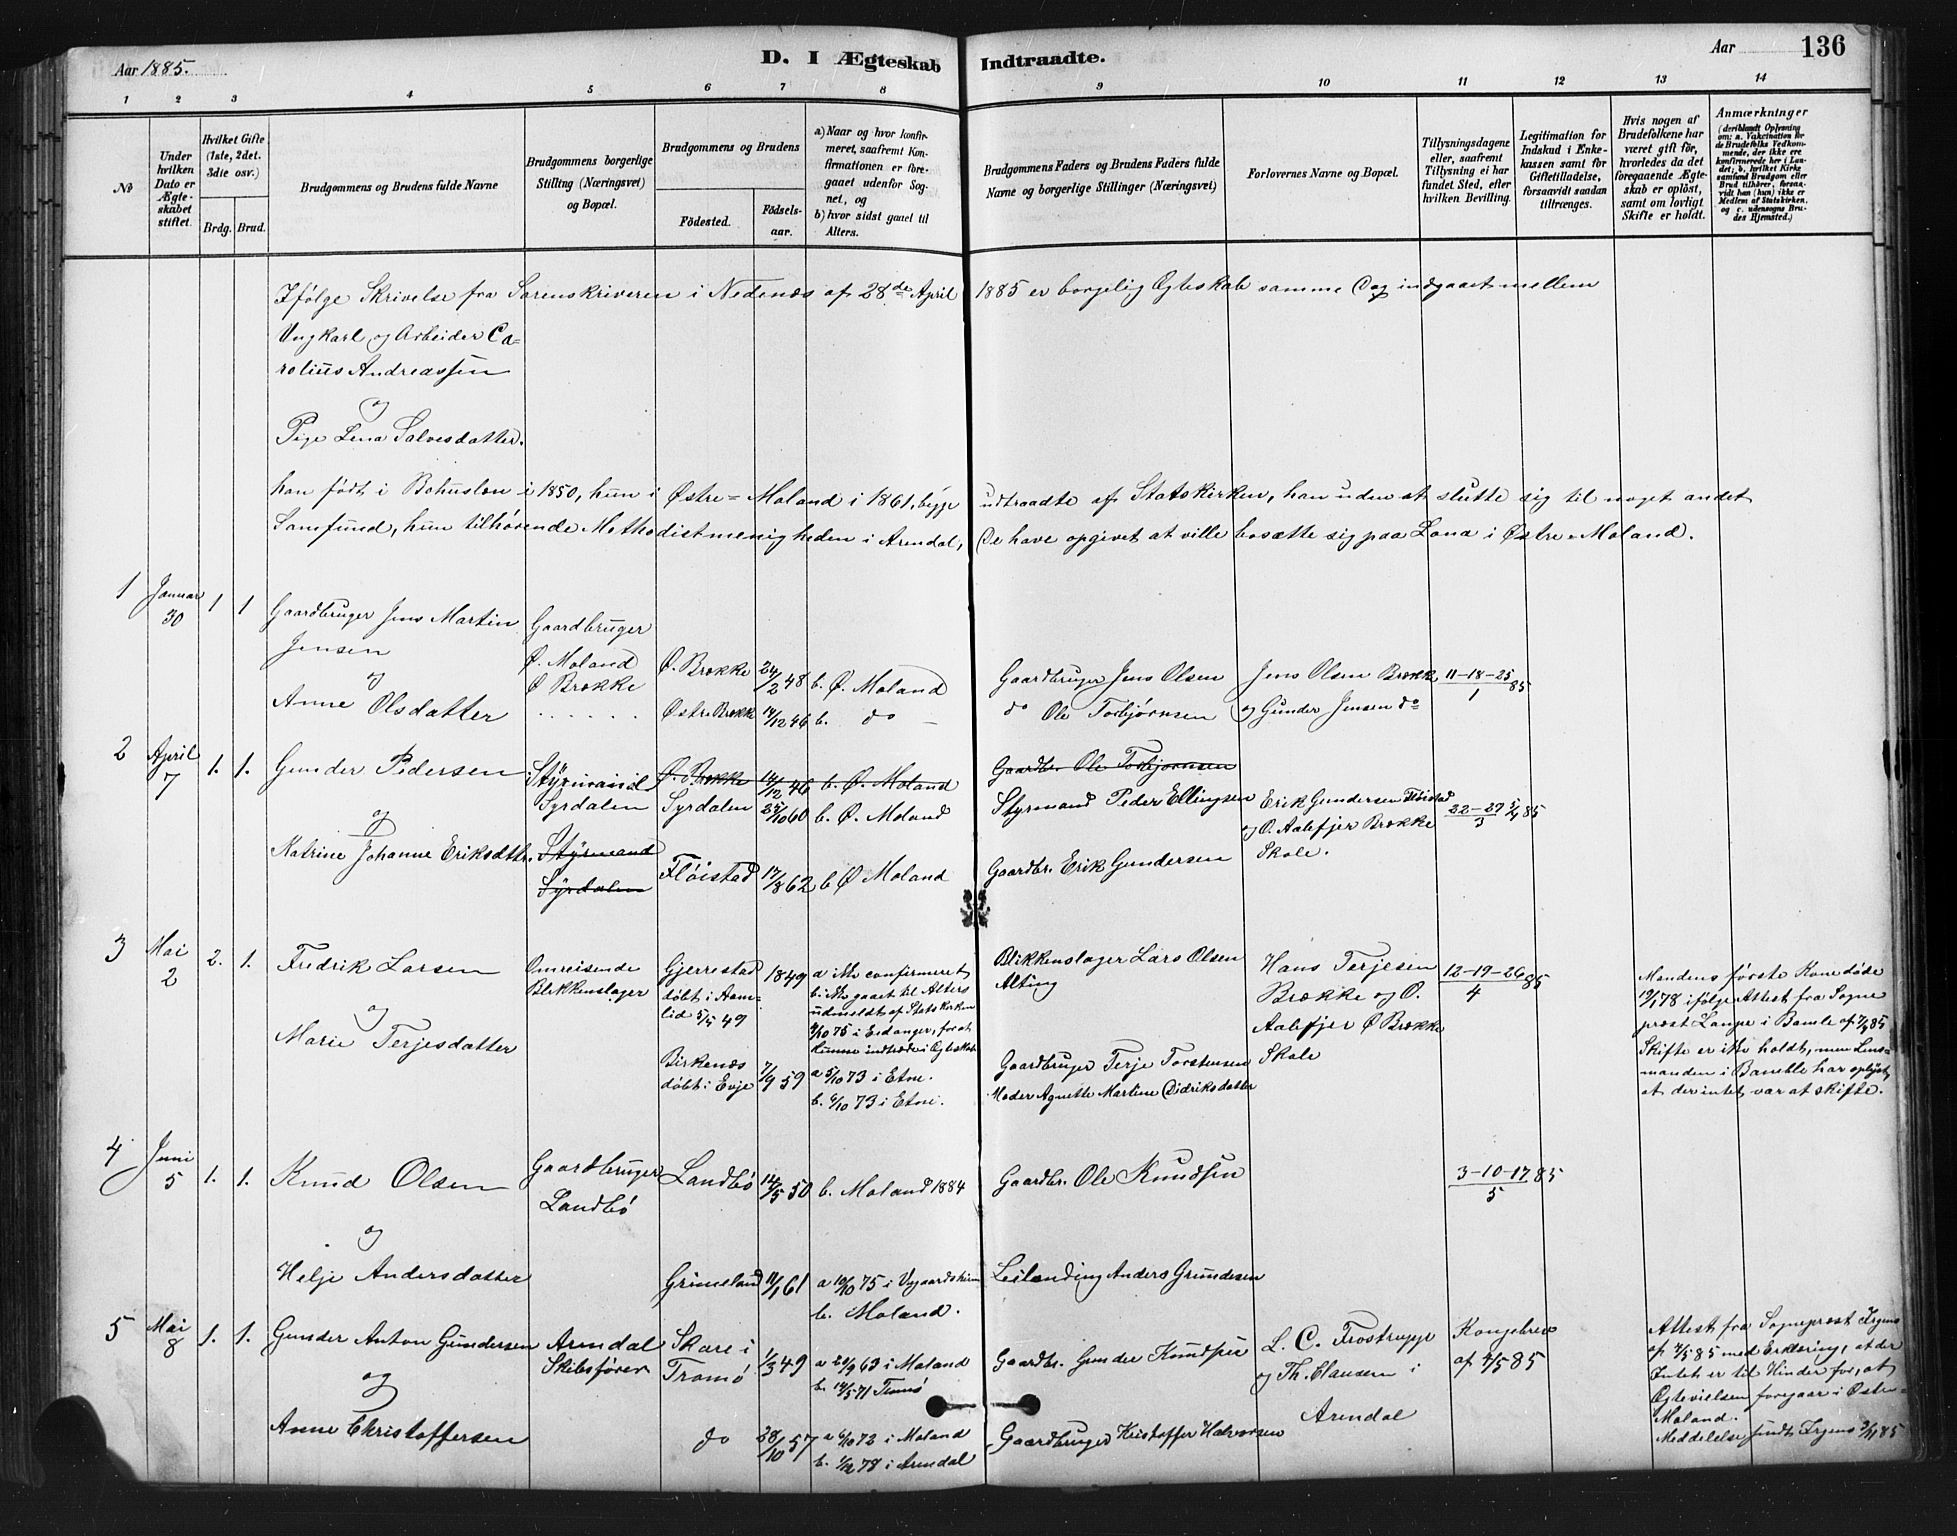 Aar 1885.
D. I Ægteskab Indtraadte.
Aar 136
1 2 3 4 5 6 7 8 9 10 11 12 13 14
No
Under hvilken Dato er Ægteskabet stiftet.
Hvilket Gifte (1ste, 2det. 3die osv.)
Brdg. Brud.
Brudgommens og Brudens fulde Navne
Brudgommens borgerlige Stilling (Næringsvei) og Bopæl.
Brudgommens og Brudens
Födested. Födselsaar.
a) Naar og hvor konfirmeret, saafremt Konfirmationen er foregaaet udenfor Sognet, og
b) hvor sidst gaaet til Alters.
Brudgommens Faders og Brudens Faders fulde Navne og borgerlige Stillinger (Næringsvei)
Forlovernes Navne og Bopæl.
Tillysningsdagene eller, saafremt Tillysning ei har fundet Sted, efter hvilken Bevilling.
Legitimation for Indskud i Enkekassen samt for Giftetilladelse, forsaavidt saadan tiltrænges.
Hvis nogen af Brudefolkene har været gift før, hvorledes da det foregaaende Ægteskab er oplöst, samt om lovligt Skifte er holdt.
Anmærkninger
(deriblandt Oplysning om: a. Vakcination for de Brudefolks Vedkommende, der ikke ere konfirmerede her i Landet; b. hvilket Kirkesamfund Brudgom eller Brud tilhörer, forsaavidt han (hun) ikke er Medlem af Statskirken. og c. udensogns Brudes Hjemsted.)
Ifølge Skrivelse fra Sorenskriveren i Nedenæs af 28de April 1885 er borgelig Egteskab samme Dag indgaaet mellem
Ungkarl og Arbeider Ca=
rolius Andreassen
og
Pige Lena Salvesdatter.
han født i Bohuslen i 1850, hun i Østre=Moland i 1861, begge udtraadte af Statskirken, han uden at slutte sig til noget andet
Samfund, hun tilhørende Methodistmenigheden i Arendal, De have opgivet at ville bosætte sig paa Lona i Østre=Moland.
1 Januar 30 1 1 Gaardbruger Jens Martin Jensen
Gaardbruger Ø. Moland Ø Brække
Ø. Brække 24/2 48 b. Ø. Moland
Gaardbruger Jens Olsen
Jens Olsen Brække og Gunder Jensen do
11-18-25/1 85
og
Anne Olsdatter
Østre Brække 14/12 46 b. do
do Ole Torbjørnsen
2 April 7 1. 1. Gunder Pedersen
Styrmand Syrdalen
Ø. Brække 14/12 46 b. Ø. Moland
Syrdalen 25/10 60 b. Ø. Moland
Gaardbr. Ole Torbjørnsen
Styrmand Peder Ellingsen
Erik Gundersen Fløistad og O. Aalefjer Brække Skole.
22-27/3 5/4 85
og
Katrine Johanne Eriksdttr.
Styrmand Syrdalen
Fløistad 17/8 62 b Ø Moland
Gaardbr. Erik Gundersen
3 Mai 2 2. 1. Fredrik Larsen
Omreisende Blikkenslager
Gjerrestad døbt i Aamlid 5/5 49
1849
a ikke confirmeret
b. ikke gaaet til Alters
udmeldt af Statskirken
9/10 75 i Eidanger, for at
kunne indtræde i Egteskab
Blikkenslager Lars Olsen Alting
Hans Terjesen Brække og O. Aalefjer Ø Brække Skole
12-19-26/4 85
Mandens første Kone døde
19/1 78 ifølge Attest fra Sogne
prest Lange i Bamle af 7/4 85
Skifte er ikke holdt, men Lens=
manden i Bamble har oplyst,
at der intet var at skifte.
og
Marie Terjesdatter
Birkenæs døbt i Evje 7/9 59
a 5/10 73 i Etne.
b. 6/10 73 i Etne.
Gaardbruger Terje Torstensen
Moder Agnette Martine Didriksdatter
4 Juni 5 1. 1. Knud Olsen
Gaardbruger Landbø
Landbø 14/5 50 b. Moland 1884
Gaardbr. Ole Knudsen
3-10-17/5 85
og
Helje Andersdatter
Grimeland 11/1 61
a 10/10 75 i
b. Moland.
Leilænding Anders Grundesen
5 Mai 8 1. 1. Gunder Anton Gundersen
Arendal Skibsfører
Skare i Tromø 1/3 49
a 20/9 63 i Moland
b. 14/5 71 Tromø
Gaardbr. Gunder Knudsen
L. C. Frostrupp og Th. Clausen i Arendal
Kongebrev af 4/5 85
Attest fra Sogneprest Irgens
af 7/5 85 med Erklæring, at der
Intet er til Hinder for, at
Egtevielsen foregaar i Østre=
Moland.
Meddelelse sendt Irgens
og
Anne Christoffersen
do 28/10 57
a 6/10 72 i Moland
b. 1/12 78 i Arendal
Gaardbruger Kristoffer Halvorsen